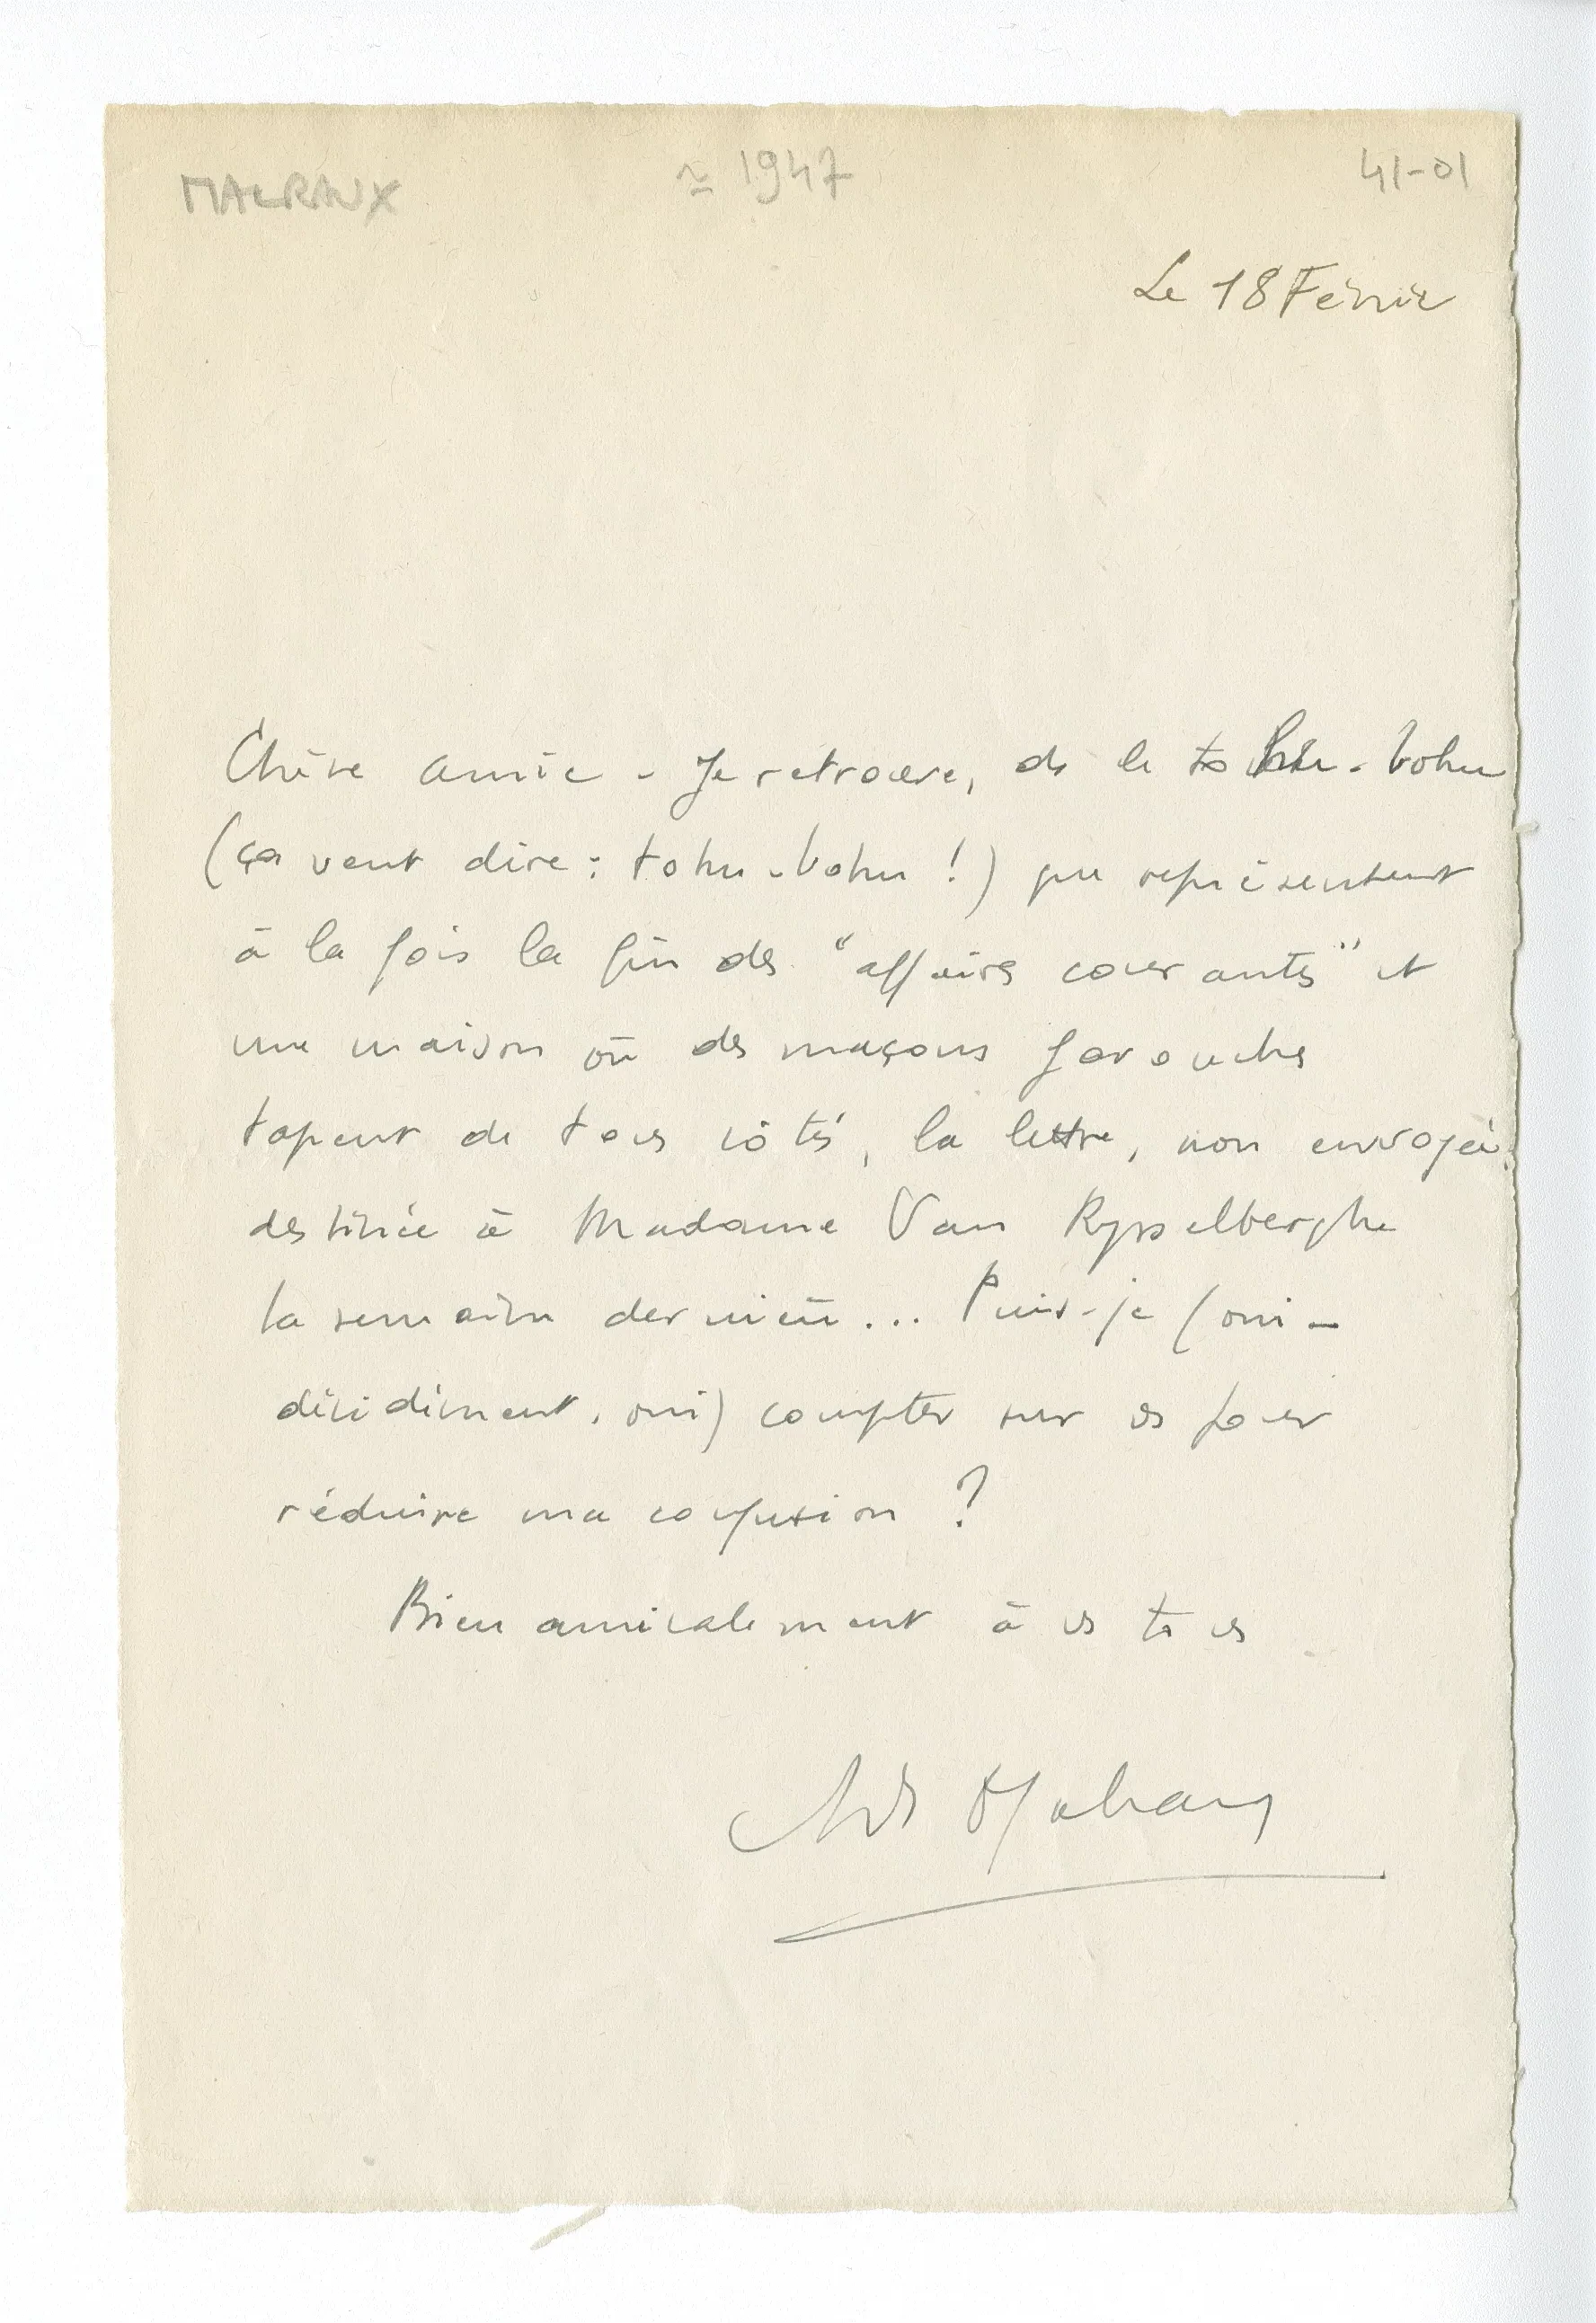 MALRAUX ≈ 1947 41-01
Le 18 Février
Chère amie - Je retrouve, ds le tohu-bohu
(ça veut dire : tohu-bohu !) que représentent
à la fois la fin des "affaires courantes" et
une maison où des maçons farouches
tapent de tous côtés, la lettre, non envoyée,
destinée à Madame Van Rysselberghe
la semaine dernière... Puis-je (oui -
décidément, oui) compter sur vs pour
réduire ma confusion ?
Bien amicalement à vs tous
André Malraux